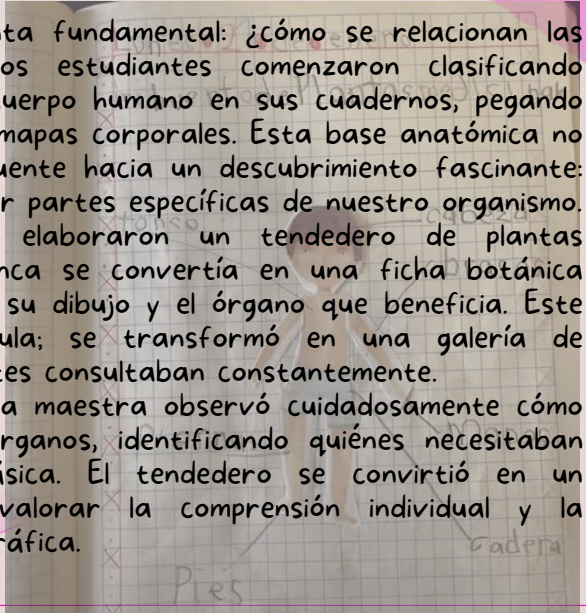 ta fundamental: ¿cómo se relacionan las
os estudiantes comenzaron clasificando
uerpo humano en sus cuadernos, pegando
mapas corporales. Esta base anatómica no
uente hacia un descubrimiento fascinante:
r partes específicas de nuestro organismo.
elaboraron un tendedero de plantas
nca se convertía en una ficha botánica
su dibujo y el órgano que beneficia. Este
ula; se transformó en una galería de
tes consultaban constantemente.
a maestra observó cuidadosamente cómo
rganos, identificando quiénes necesitaban
ásica. El tendedero se convirtió en un
valorar la comprensión individual y la
ráfica.
cabeza
cadera
Pies